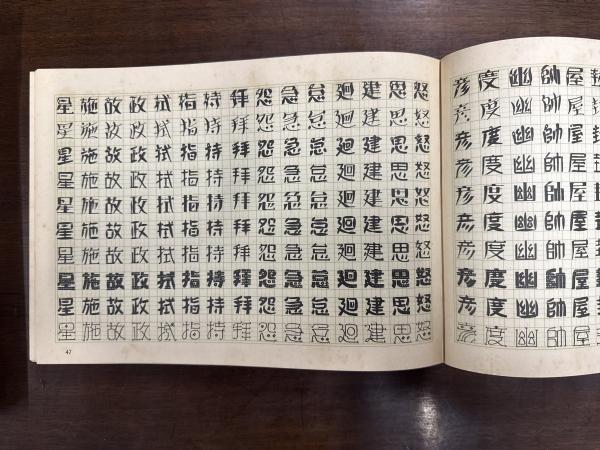 星施故政拭指持拝怨急怠廻建思怒
星施故政拭指持拝怨急怠廻建思怒
星施故政拭指持拝怨急怠廻建思怒
星施故政拭指持拝怨急怠廻建思怒
星施故政拭指持拝怨急怠廻建思怒
星施故政拭指持拝怨急怠廻建思怒
星施故政拭指持拝怨急怠廻建思怒
星施故政拭指持拝怨急怠廻建思怒
星施故政拭指持拝怨急怠廻建思怒
星施故政拭指持拝怨急怠廻建思怒
47
彦度幽帥屋
彦度幽帥屋
彦度幽帥屋
彦度幽帥屋
彦度幽帥屋
彦度幽帥屋
彦度幽帥屋
彦度幽帥屋
彦度幽帥屋
彦度幽帥屋